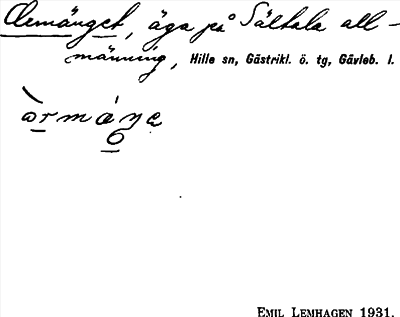 Olemänget, äga på Sältala all-
männing, Hille sn, Gästrikl. ö. tg, Gävleb. l.
EMIL LEMHAGEN 1931.